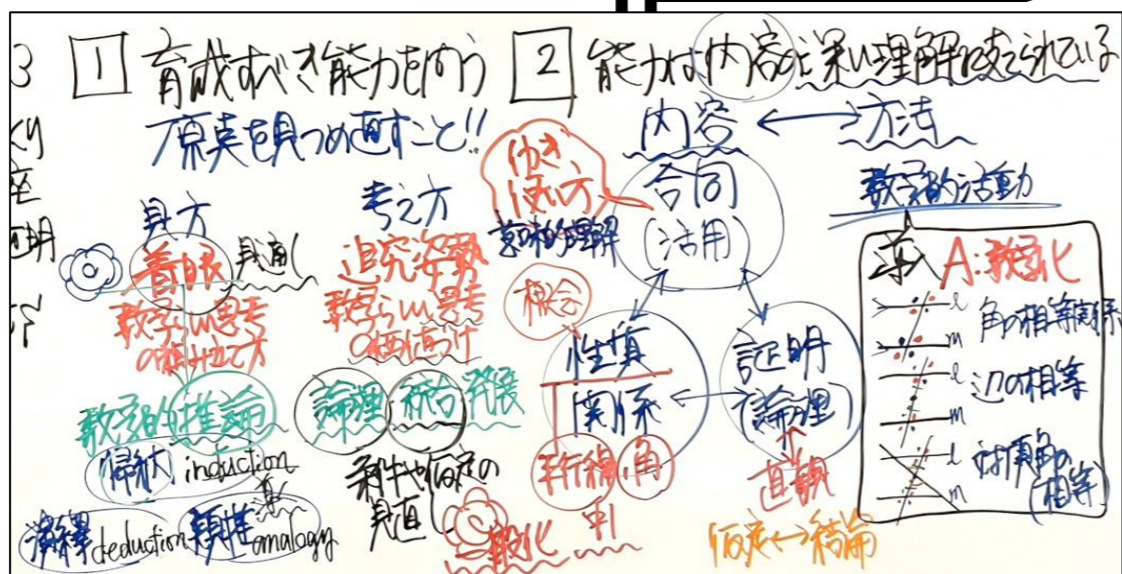 3
1 育成すべき能力を問う
原点を見つめ直すこと!!
見方
着眼 見通し
数学らしい思考
の組み立て方
数学的推論
帰納 induction
演繹 deduction 類推 analogy
考え方
追究姿勢
数学らしい思考
の価値づけ
論理 統合 発展
条件や仮定の
見直し
一般化
2 能力は内容の深い理解に支えられている
内容 ↔ 方法
働き
使い方
意味的理解
合同
(活用)
機会
性質
関係
平行線、角
中1
証明
論理
直観
仮定↔結論
数学的活動
A:数学化
l
m
l
m
l
m
角の相等関係
辺の相等
対頂角の
相等